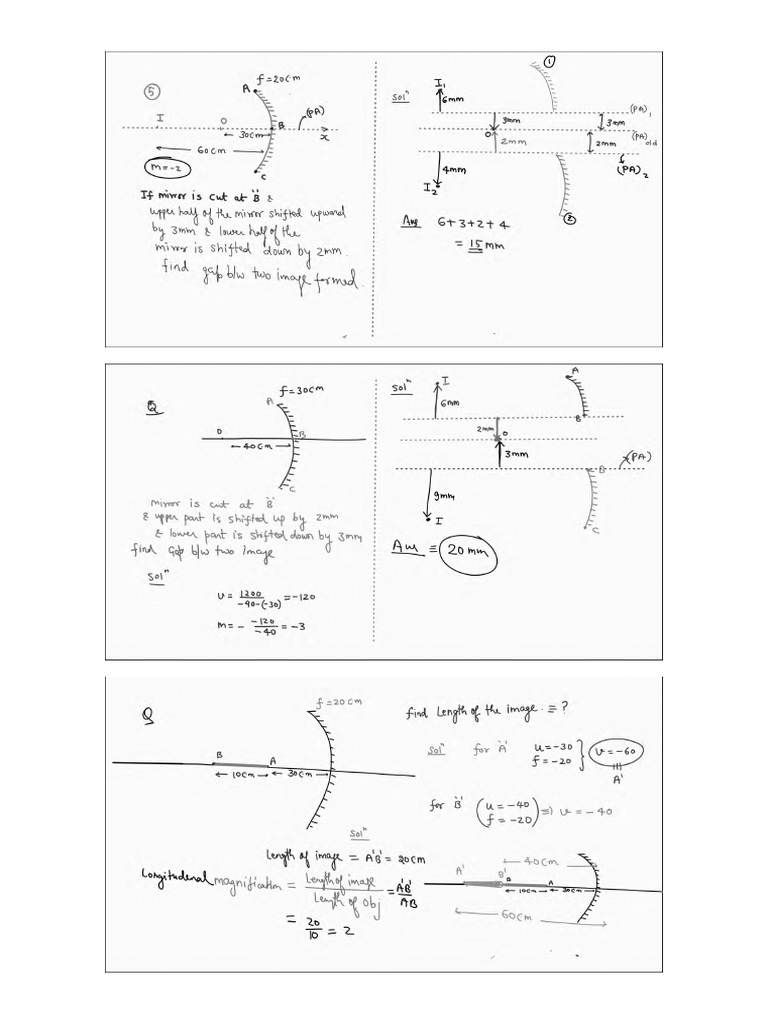 5
f = 20cm
A
I
O
B
(PA)
x
30cm
60cm
m = -2
C
If mirror is cut at "B" &
upper half of the mirror shifted upward
by 3mm & lower half of the
mirror is shifted down by 2mm.
find gap b/w two image formed.
Solⁿ
1
I₁
6mm
3mm
3mm
(PA)₁
O
2mm
2mm
(PA)old
4mm
(PA)₂
I₂
2
Ans 6+3+2+4
= 15mm
Q
f = 30cm
A
O
B
40cm
C
mirror is cut at "B"
& upper part is shifted up by 2mm
& lower part is shifted down by 3mm
find Gap b/w two image
Solⁿ
v = 1200/-40-(-30) = -120
m = - -120/-40 = -3
Solⁿ
I
A
6mm
B
2mm
O
3mm
(PA)
B
9mm
I
C
Ans ≡ 20mm
Q
f = 20cm
B
A
10cm
30cm
find Length of the image. ≡ ?
Solⁿ for 'A' u = -30
f = -20
v = -60
A'
for 'B' (u = -40
f = -20) ⇒ v = -40
Solⁿ
Length of image = A'B' = 20cm
Longitudenal magnification = Length of image/Length of obj = A'B'/AB
= 20/10 = 2
40cm
A'
B'
B
A
10cm
30cm
60cm